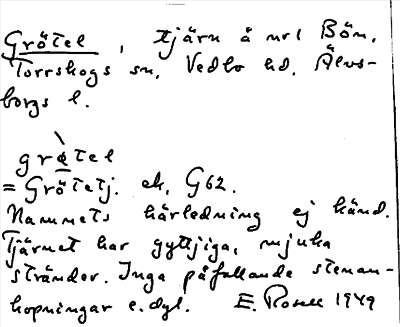 Grötel, tjärn å nr 1 Bön,
Torrskogs sn, Vedbo hd, Älvs-
borgs l.
grø̀tel
= Grötetj. ek, G62.
Namnets härledning ej känd.
Tjärnet har gyttjiga, mjuka
stränder. Inga påfallande stenan-
hopningar e.dyl. E. Rosell 1949